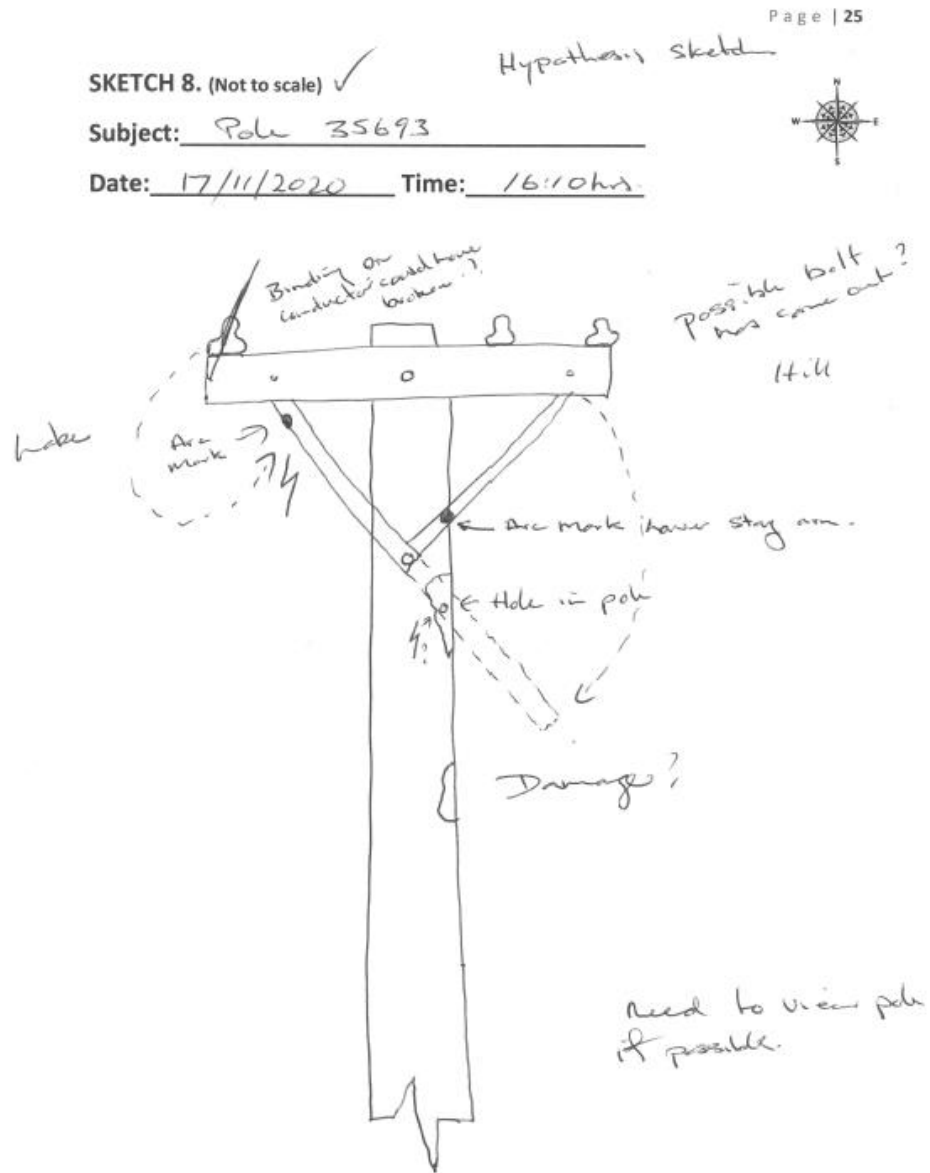 Page | 25
Hypothesis sketch
SKETCH 8. (Not to scale) ✓
Subject: Pole 35693
Date: 17/11/2020 Time: 16:10hrs.
N
W E
S
Binding on
conductor could have
broken?
Possible bolt
has come out?
Hill
Lake
Arc
mark
Arc mark lower stay arm.
Hole in pole
?
Damage?
Need to view pole
if possible.